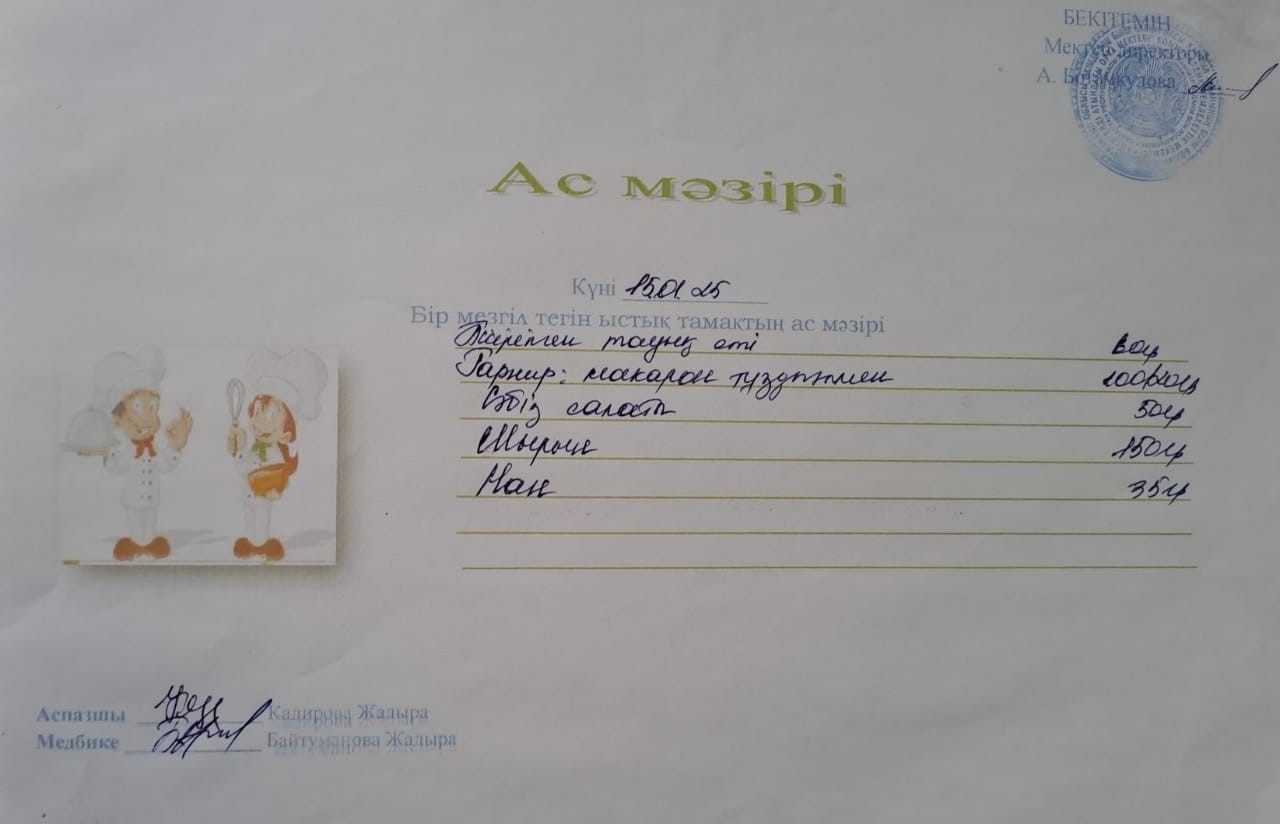 БЕКІТЕМІН
Мектеп директоры
А.
Ас мәзірі
Күні 15.01.25
Бір мезгіл тегін ыстық тамақтың ас мәзірі
Пісірілген тауық еті 60гр
Гарнир: макарон тұздықпен 100/40гр
Сәбіз салаты 50гр
Шырын 150гр
Нан 35гр
Аспазшы Кадирова Жадыра
Медбике Байтуманова Жадыра